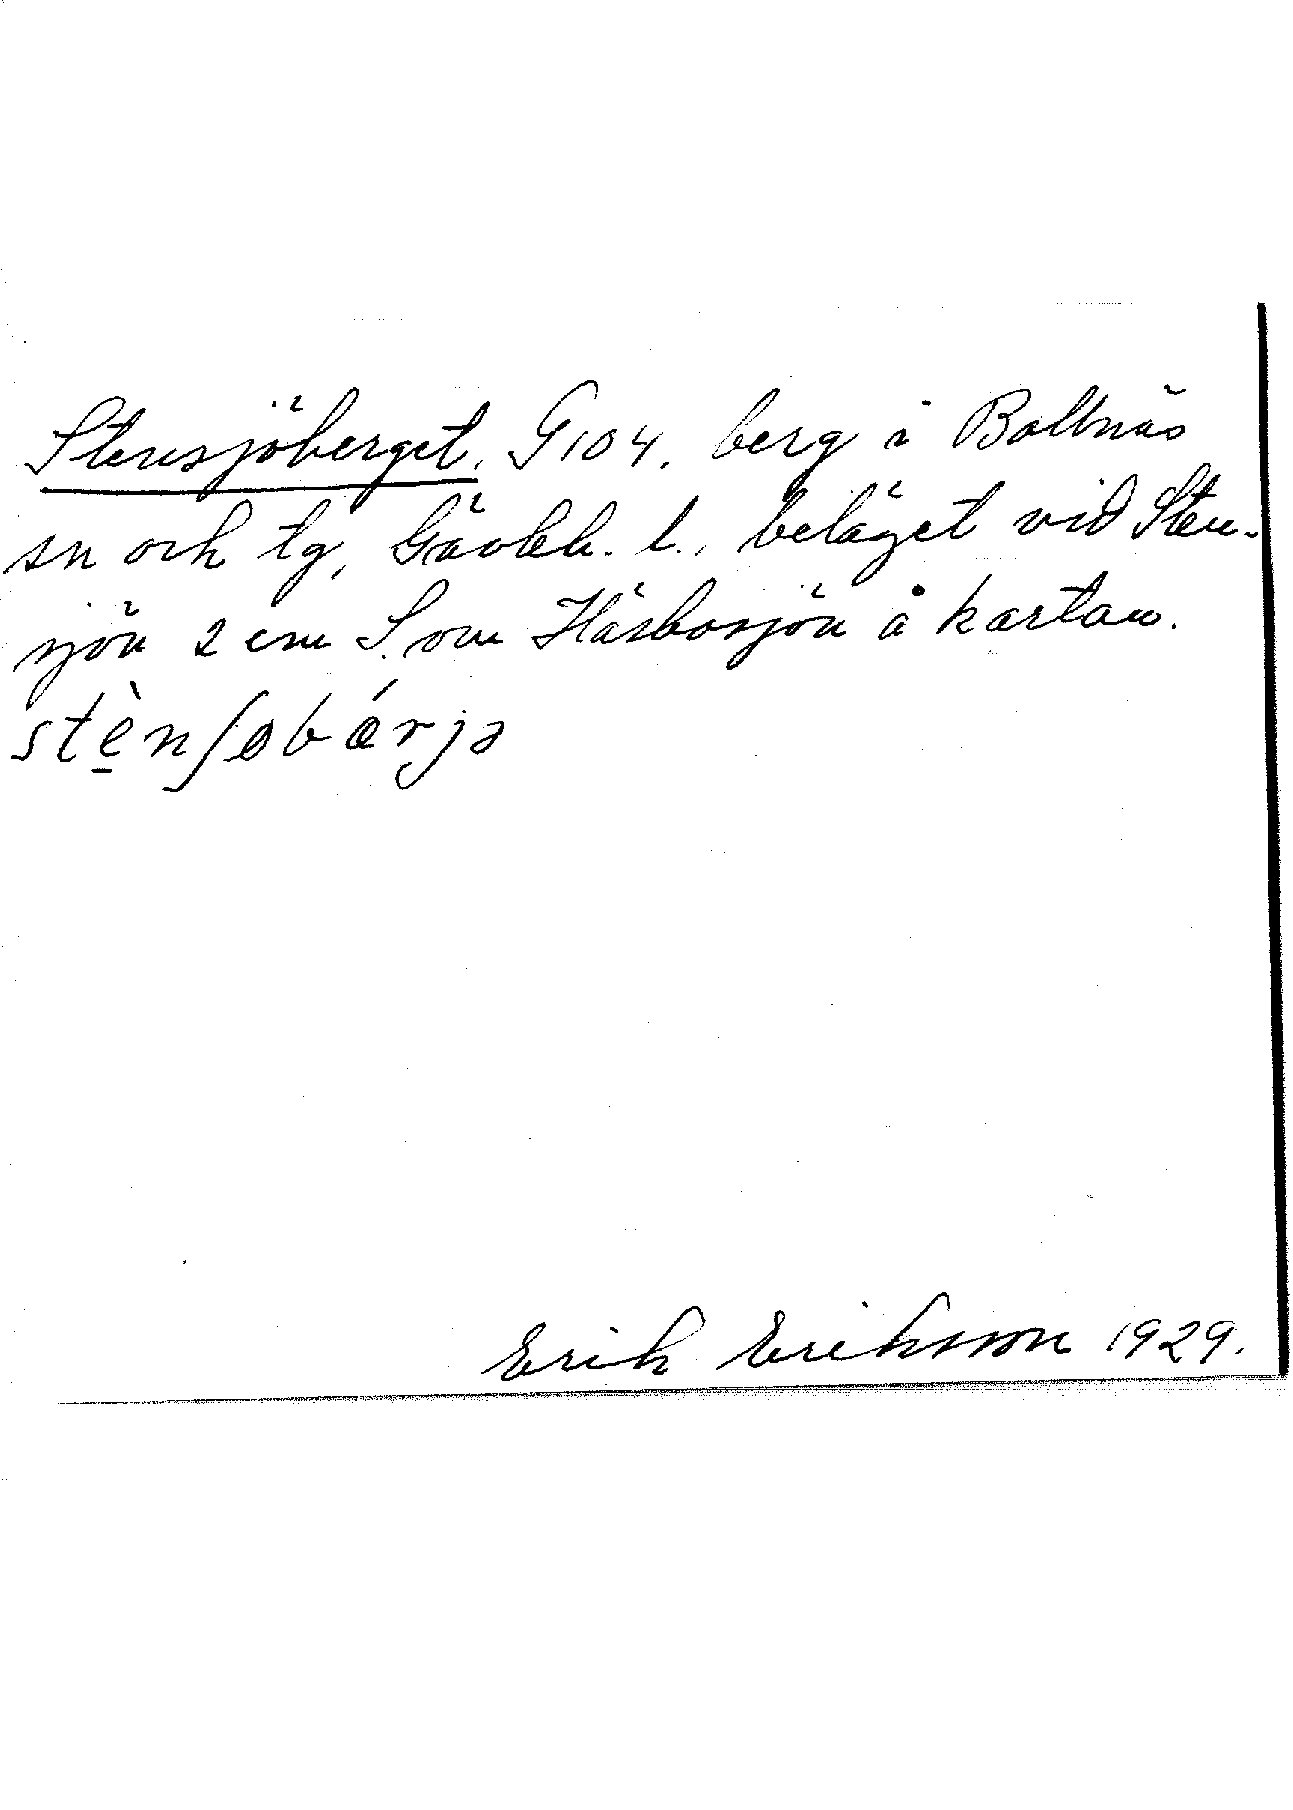 Stensjöberget, G104, berg i Bollnäs
sn och tg, Gävleb. l., beläget vid Sten-
sjön 2 cm S. om Häsbosjön å kartan.
stè̠nʃøbǽrjə
Erik Eriksson 1929.